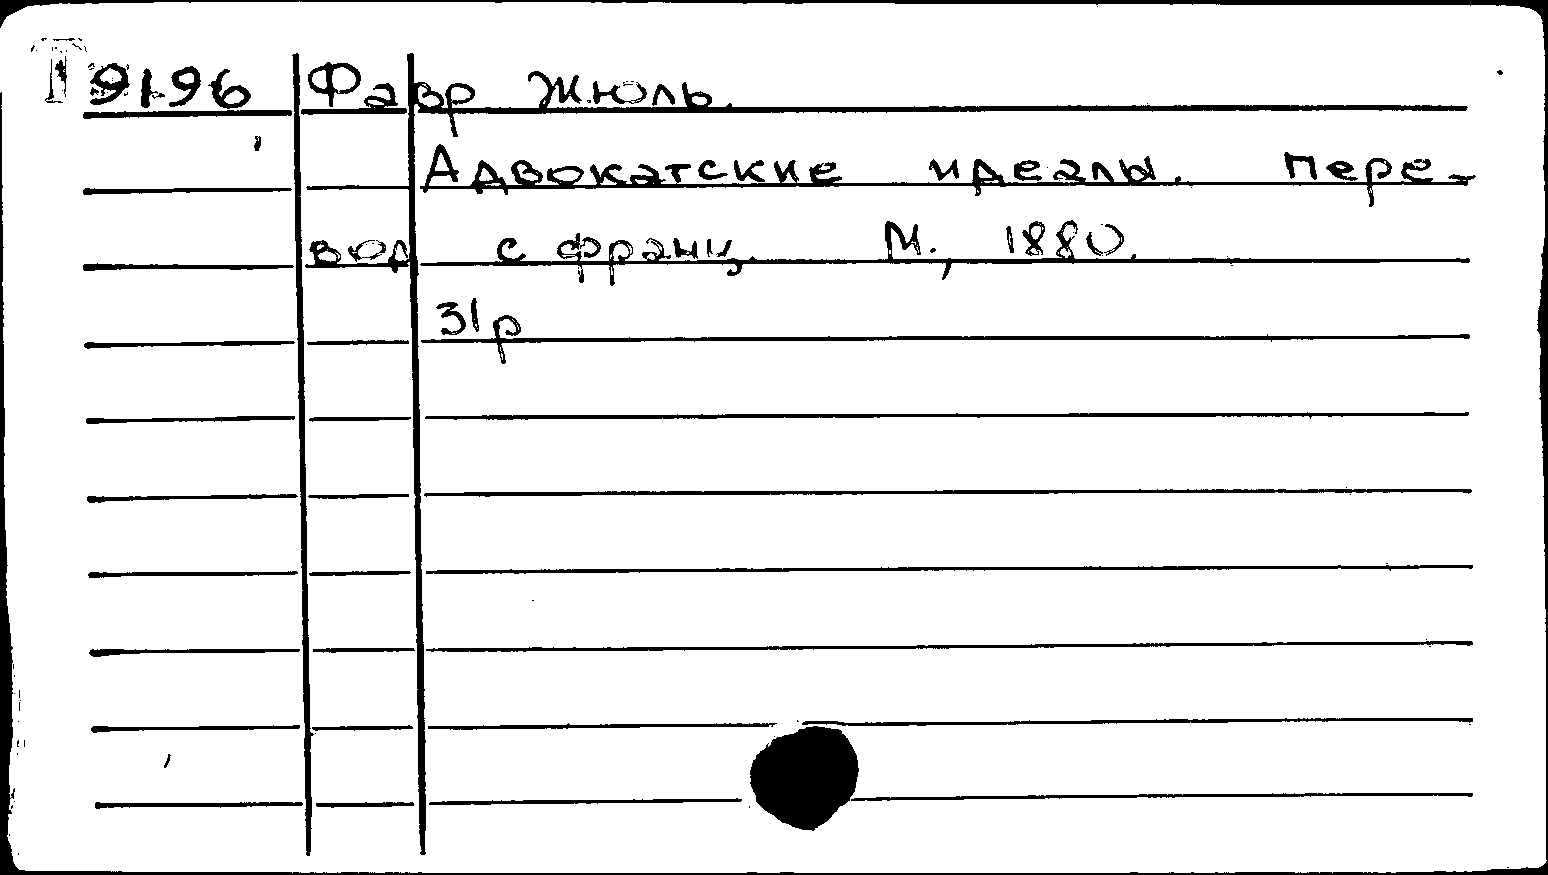 Т 9196 Фавр Жюль.
Адвокатские идеалы. Пере-
вод с франц. М., 1880.
31р